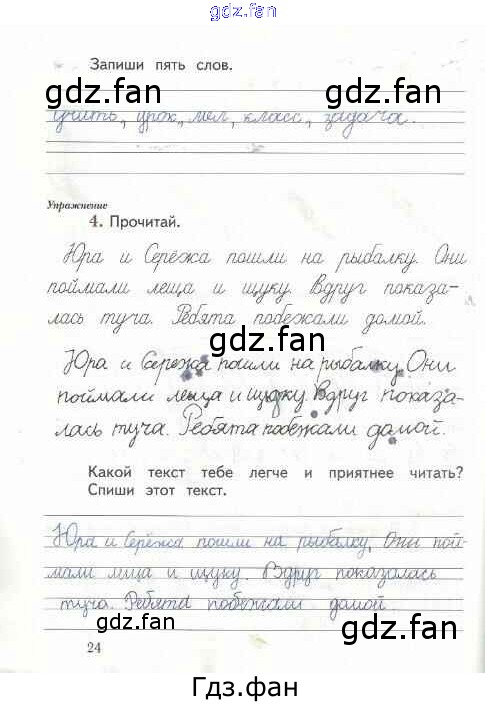 gdz.fan
Запиши пять слов.
gdz.fan gdz.fan
учить, урок, мел, класс, задача.
Упражнение
4. Прочитай.
gdz.fan
Юра и Серёжа пошли на рыбалку. Они
поймали леща и щуку. Вдруг показа-
лась туча. Ребята побежали домой.
gdz.fan
Юра и Сережа пошли на рыбалку. Они
поймали леща и щуку. Вдруг показа-
лась туча. Ребята побежали домой.
Какой текст тебе легче и приятнее читать?
Спиши этот текст.
gdz.fan gdz.fan
Юра и Серёжа пошли на рыбалку. Они пой-
мали лица и щуку. Вдруг показалась
туча. Ребята побежали домой.
gdz.fan gdz.fan
24
Гдз.фан